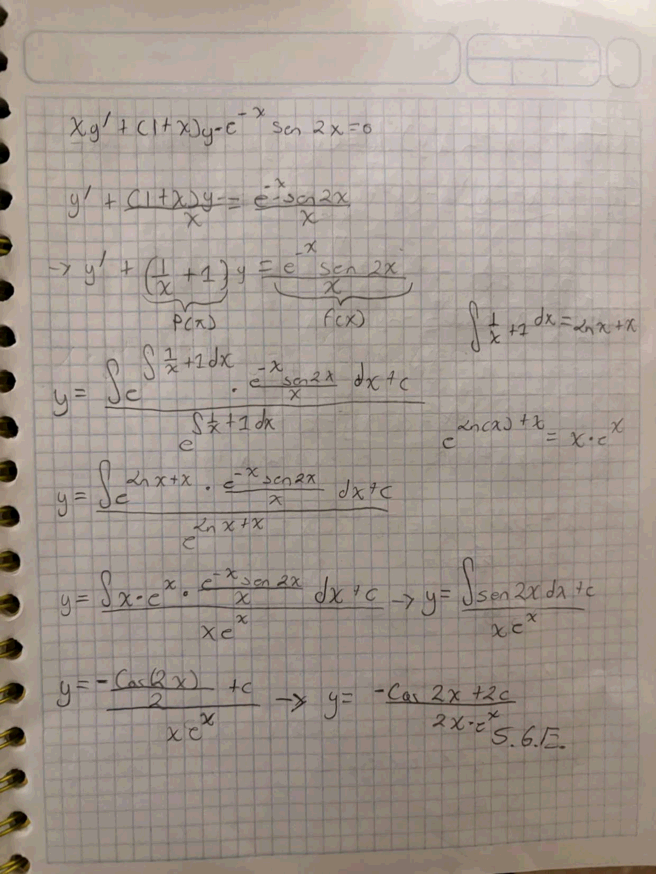 xy' + (1+x)y - e^{-x} sen 2x = 0
y' + \frac{(1+x)y}{x} = \frac{e^{-x} sen 2x}{x}
→ y' + (\frac{1}{x} + 1) y = \frac{e^{-x} sen 2x}{x}
P(x) f(x)
∫ \frac{1}{x} + 1 dx = Ln x + x
y = \frac{∫ e^{∫ \frac{1}{x} + 1 dx} · \frac{e^{-x} sen 2x}{x} dx + c}{e^{∫ \frac{1}{x} + 1 dx}}
e^{Ln(x) + x} = x · e^x
y = \frac{∫ e^{Ln x + x} · \frac{e^{-x} sen 2x}{x} dx + c}{e^{Ln x + x}}
y = \frac{∫ x · e^x · \frac{e^{-x} sen 2x}{x} dx + c}{x e^x} → y = \frac{∫ sen 2x dx + c}{x e^x}
y = \frac{-\frac{Cos(2x)}{2} + c}{x e^x} → y = \frac{-Cos 2x + 2c}{2x · e^x}
S.G.E.